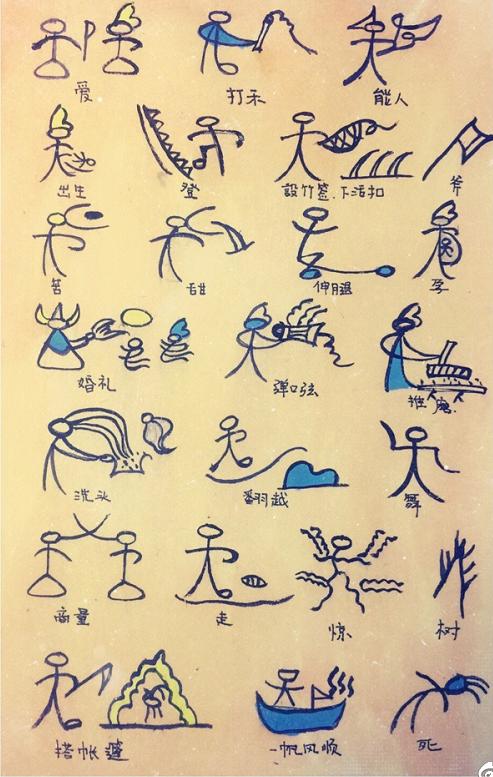 爱
打禾
能人
出生
登
設竹签.下活扣
斧
苦
甜
伸腿
孕
婚礼
弹口弦
洗头
翻越
舞
商量
走
惊
树
搭帐篷
一帆风顺
死